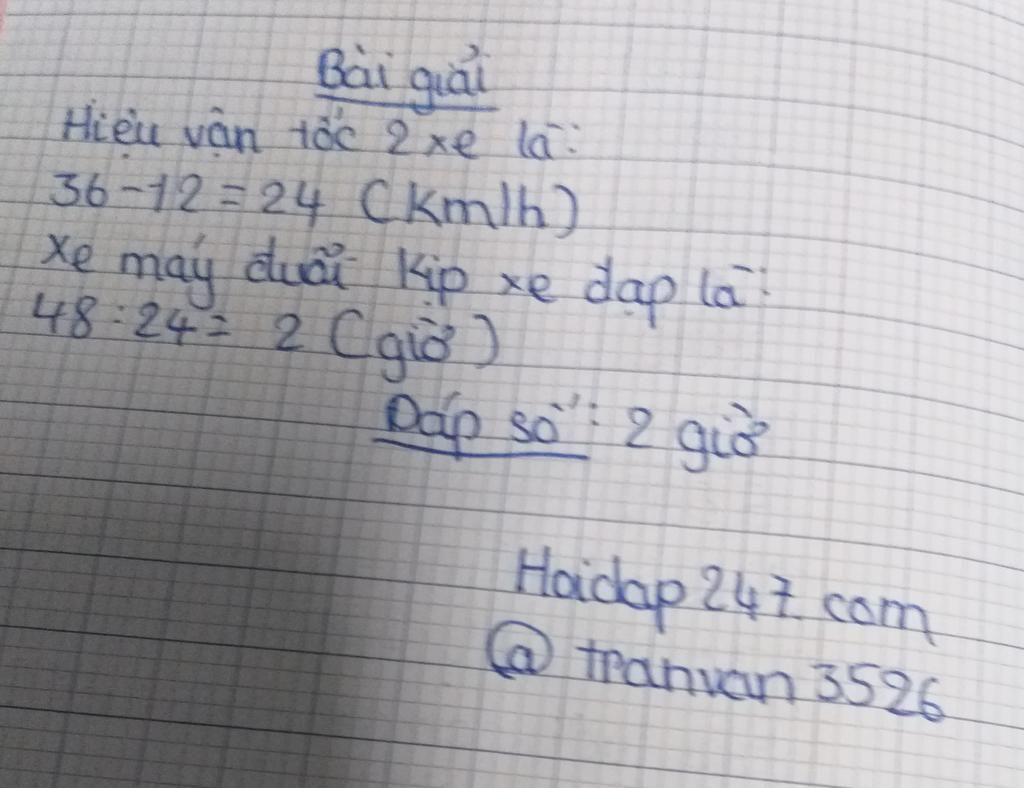 Bài giải
Hiệu vận tốc 2 xe là:
36 - 12 = 24 (km/h)
xe máy đuổi kịp xe đạp là:
48 : 24 = 2 (giờ)
Đáp số: 2 giờ
Hoidap247.com
@ tranvan3526